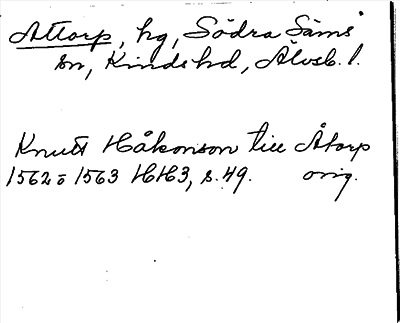 Attorp, hg, Södra Säms
sn, Kinds hd, Älvsb. l.
Knutt Håkonson till Åtorp
1562 o 1563 HH3, s. 49. orig.